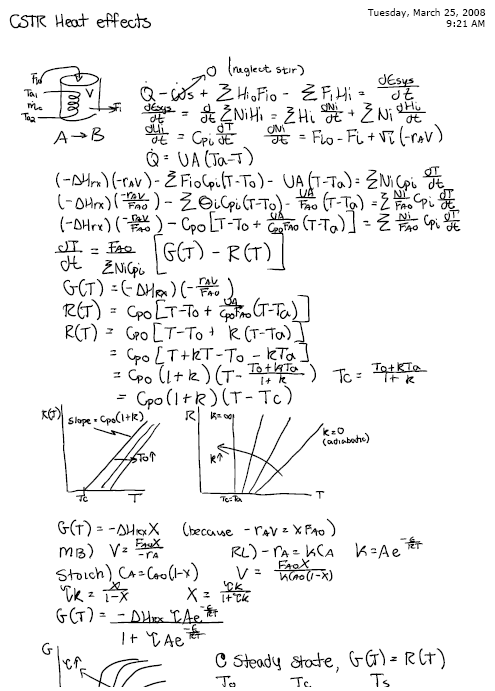 CSTR Heat effects
Tuesday, March 25, 2008
9:21 AM
0 (neglect stir)
Q̇ - Ẇs + ΣHi0Fi0 - ΣFiHi = dEsys/dt
Fi0
Ta1
ṁc
Ta2
V
Fi
A → B
dEsys/dt = d/dt ΣNiHi = ΣHi dNi/dt + ΣNi dHi/dt
dHi/dt = Cpi dT/dt dNi/dt = Fi0 - Fi + νi(-rAV)
Q̇ = UA(Ta-T)
(-ΔHrx)(-rAV) - ΣFi0Cpi(T-T0) - UA(T-Ta) = ΣNiCpi dT/dt
(-ΔHrx)(-rAV/FA0) - ΣΘiCpi(T-T0) - UA/FA0 (T-Ta) = ΣNi/FA0 Cpi dT/dt
(-ΔHrx)(-rAV/FA0) - CP0[T-T0 + UA/CP0FA0 (T-Ta)] = ΣNi/FA0 Cpi dT/dt
dT/dt = FA0/ΣNiCpi [G(T) - R(T)]
G(T) = (-ΔHRX)(-rAV/FA0)
R(T) = CP0[T-T0 + UA/CP0FA0 (T-Ta)]
R(T) = CP0[T-T0 + k(T-Ta)]
= CP0[T+kT-T0-kTa]
= CP0(1+k)(T - T0+kTa/1+k) Tc = T0+kTa/1+k
= CP0(1+k)(T-Tc)
R(T)
slope = CP0(1+k)
T0↑
Tc
T
R
k=∞
k↑
k=0
(adiabatic)
Tc=Ta
T
G(T) = -ΔHRX X (because -rAV = XFA0)
MB) V = FA0X/-rA RL) -rA = kCA k = Ae^-E/RT
Stoich) CA = CA0(1-X) V = FA0X/kCA0(1-X)
τk = X/1-X X = τk/1+τk
G(T) = -ΔHRX τAe^-E/RT / 1 + τAe^-E/RT
G
τ↑
@ Steady State, G(T) = R(T)
T0 Tc Ts